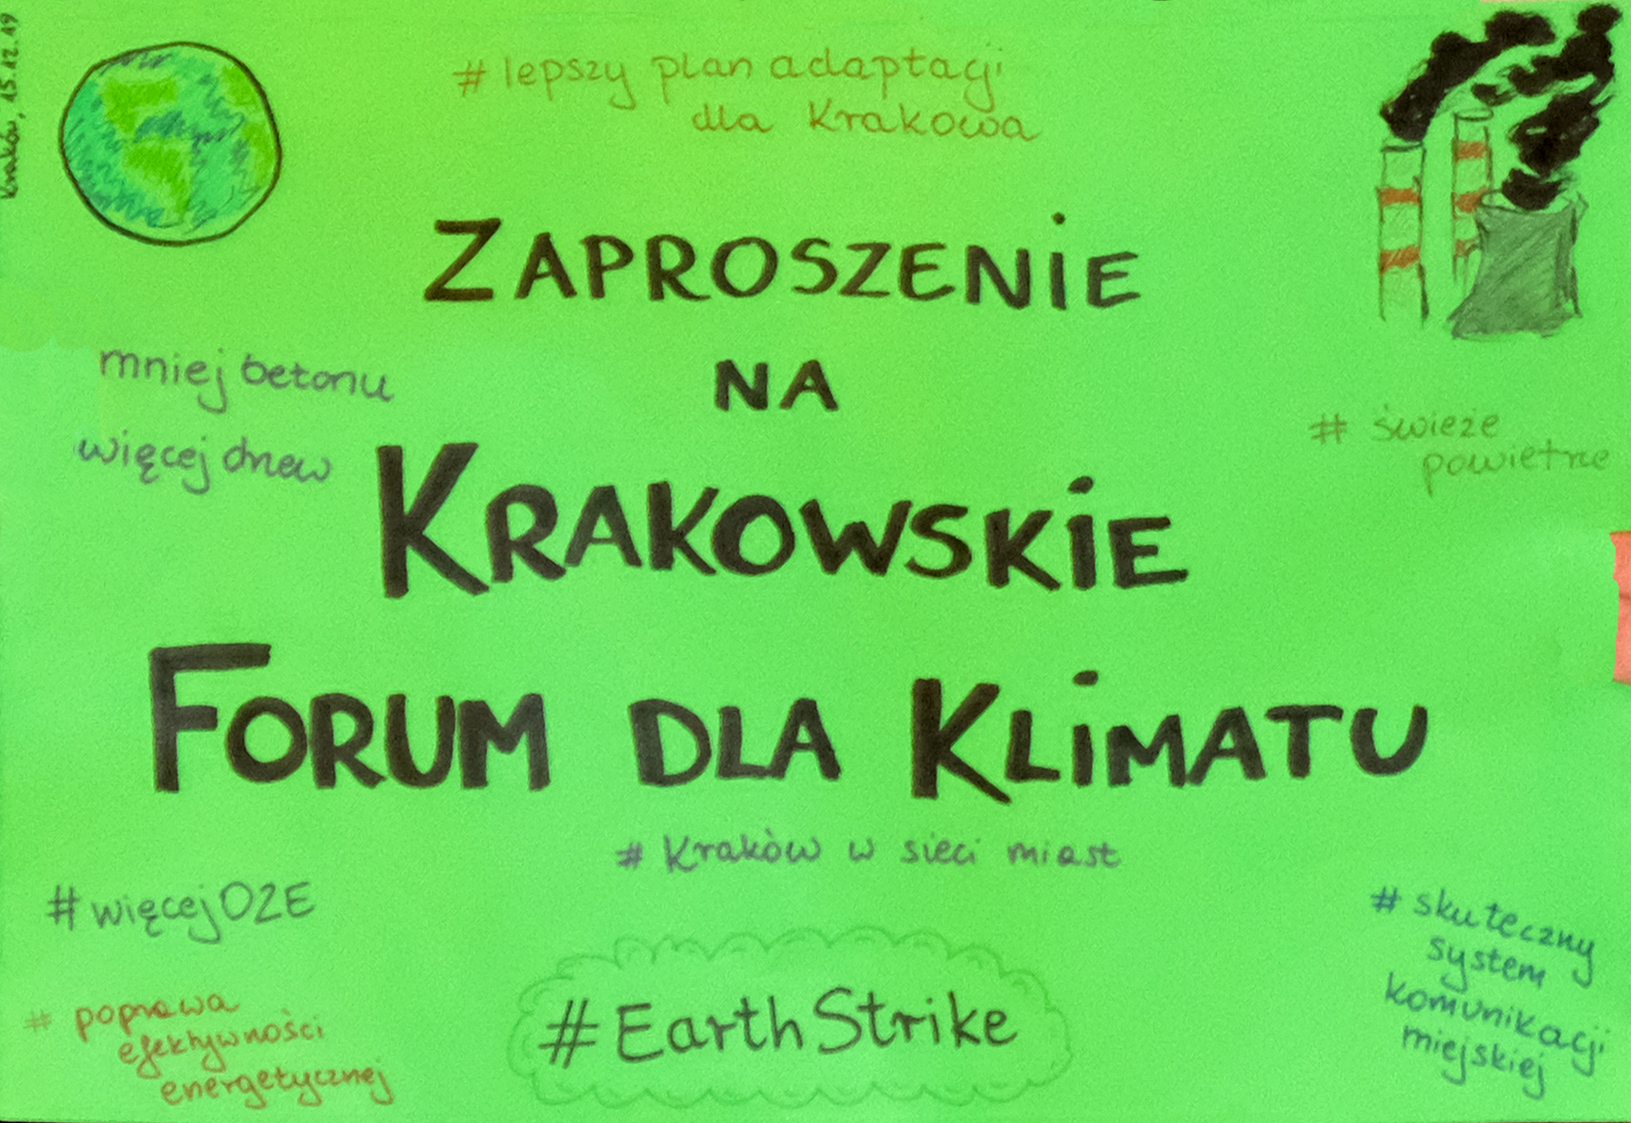 Kraków, 15.12.19
# lepszy plan adaptacji
dla Krakowa
ZAPROSZENIE
NA
KRAKOWSKIE
FORUM DLA KLIMATU
mniej betonu
więcej drzew
# świeże
powietrze
# Kraków w sieci miast
#więcejOZE
# poprawa
efektywności
energetycznej
#EarthStrike
# skuteczny
system
komunikacji
miejskiej